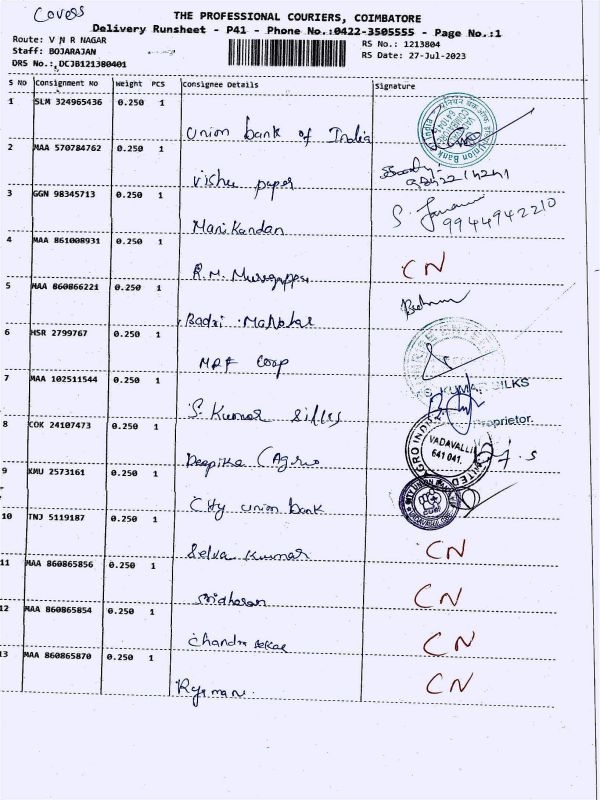 Covers
THE PROFESSIONAL COURIERS, COIMBATORE
Delivery Runsheet - P41 - Phone No.:0422-3505555 - Page No.:1
Route: V N R NAGAR
RS No.: 1213804
Staff: BOJARAJAN
RS Date: 27-Jul-2023
DRS No.: DCJB121380401
S No Consignment No Weight PCS Consignee Details Signature
1 SLM 324965436 0.250 1 Union bank of India
2 MAA 570784762 0.250 1 Vishu paper
3 GGN 98345713 0.250 1 Manikandan S. 9944942210
4 MAA 861008931 0.250 1 R.M. Murugappa CN
5 MAA 860866221 0.250 1 Badri
6 HSR 2799767 0.250 1 MRF Corp
7 MAA 102511544 0.250 1 S. Kumar silks KUMAR SILKS
Proprietor.
8 COK 24107473 0.250 1 Deepika (Agro AGRO VADAVALLI 641 041.
9 KMU 2573161 0.250 1 City union bank
10 TNJ 5119187 0.250 1 Selva kumar CN
11 MAA 860865856 0.250 1 Sridharan CN
12 MAA 860865854 0.250 1 Chandra sekar CN
13 MAA 860865870 0.250 1 CN